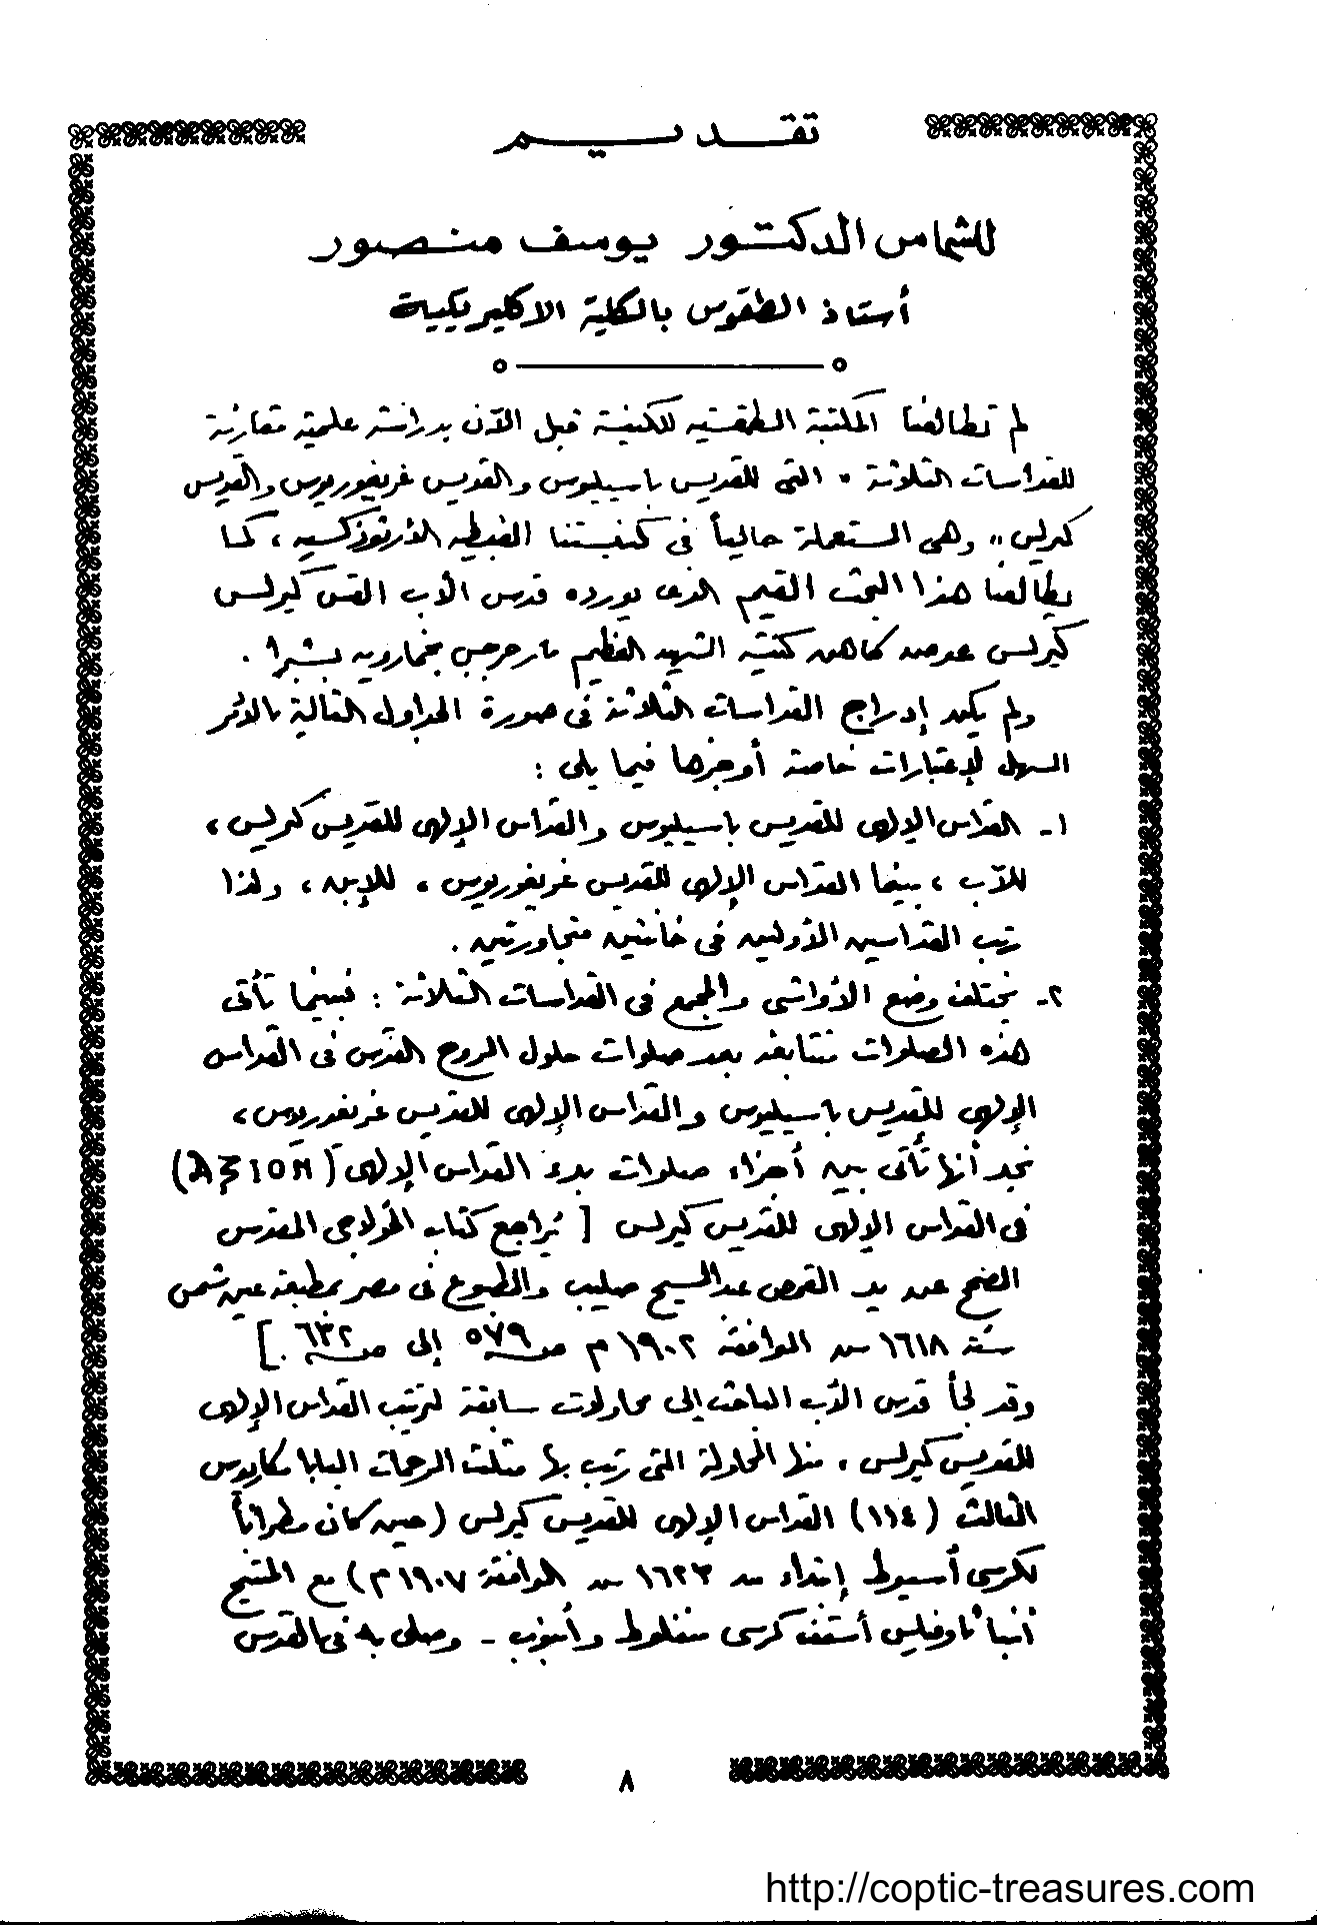 تقديم
للشماس الدكتور يوسف منصور
أستاذ الطقوس بالكلية الاكليريكية
لم تطالعنا المكتبة الطقسيه للكنيسة قبل الآن بدراسة علمية مقارنة
للقداسات الثلاثة " التى للقديس باسيليوس والقديس غريغوريوس والقديس
كيرلس " وهى المستعملة حالياً فى كنيستنا القبطيه الأرثوذكسيه ، كما
يطالعنا هذا البحث القيم الذى يورده قدس الأب القس كيرلس
كيرلس عوض كاهن كنيسة الشهيد العظيم مارجرجس بخمارويه بشبرا .
ولم يكن إدراج القداسات الثلاثة فى صورة الجداول التالية بالأمر
السهل لإعتبارات خاصة أوجزها فيما يلى :
١- القداس الإلهى للقديس باسيليوس والقداس الإلهى للقديس كيرلس ،
للآب ، بينما القداس الإلهى للقديس غريغوريوس ، للإبن ، ولذا
رتب القداسين الأولين فى خانتين متجاورتين .
٢- يختلف وضع الأواشى والمجمع فى القداسات الثلاثة : فبينما تأتى
هذه الصلوات متتابعة بعد صلوات حلول الروح القدس فى القداس
الإلهى للقديس باسيليوس والقداس الإلهى للقديس غريغوريوس ،
نجد أنها تأتى بين أجزاء صلوات بدء القداس الإلهى (ⲁⲝⲓⲟⲛ)
فى القداس الإلهى للقديس كيرلس [ يُراجع كتاب الخولاجى المقدس
المصحح عن يد القمص عبدالمسيح صليب والمطبوع فى مصر بمطبعة عين شمس
سنة ١٦١٨ ش الموافقة ١٩٠٢ م من ص ٥٧٩ إلى ص ٦٣٢ . ]
وقد لجأ قدس الأب الباحث إلى محاولات سابقة لترتيب القداس الإلهى
للقديس كيرلس ، منها المحاولة التى رتب بها مثلث الرحمات البابا مكاريوس
الثالث (١١٤) القداس الإلهى للقديس كيرلس (حين كان مطراناً
لكرسى أسيوط إبتداء من ١٦٢٣ ش الموافقة ١٩٠٧ م) مع المتنيح
أنبا ثاوفيلس أسقف كرسى منفلوط وأبنوب - وصلى به فى القدس
٨
http://coptic-treasures.com